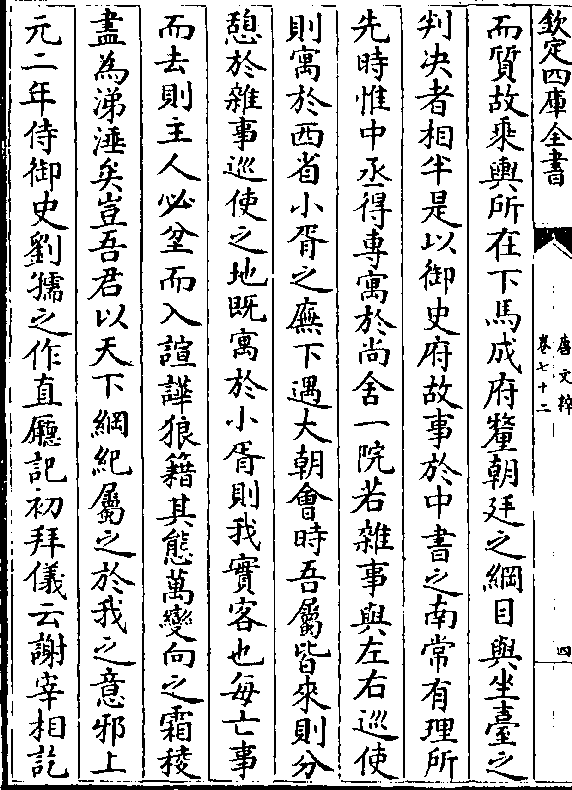 欽定四庫全書
唐文粹
卷七十二
四
而質故乘輿所在下馬成府釐朝廷之綱目與坐臺之
判决者相半是以御史府故事於中書之南常有理所
先時惟中丞得專寓於尚舍一院若雜事與左右巡使
則寓於西省小胥之廡下遇大朝會時吾屬皆來則分
憩於雜事巡使之地既寓於小胥則我實客也每亡事
而去則主人必坌而入諠譁狼籍其態萬變向之霜稜
盡為涕洟矣豈吾君以天下綱紀屬之於我之意邪上
元二年侍御史劉孺之作直廳記初拜儀云謝宰相訖